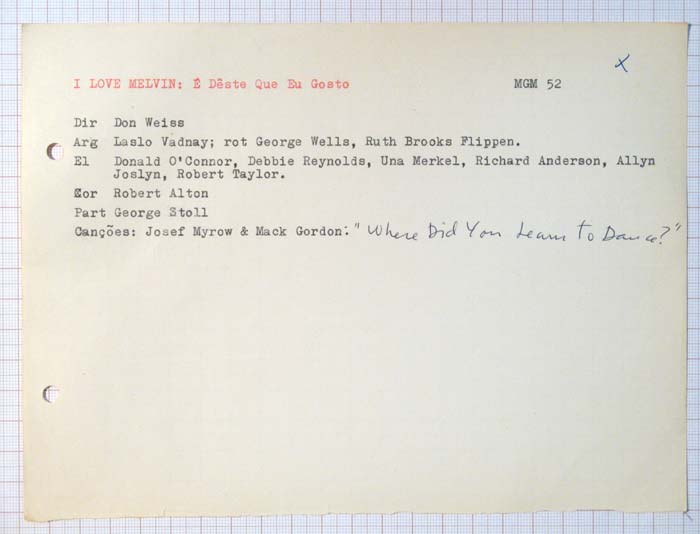 X
I LOVE MELVIN: É Dêste Que Eu Gosto MGM 52
Dir Don Weiss
Arg Laslo Vadnay; rot George Wells, Ruth Brooks Flippen.
El Donald O'Connor, Debbie Reynolds, Una Merkel, Richard Anderson, Allyn
Joslyn, Robert Taylor.
Cor Robert Alton
Part George Stoll
Canções: Josef Myrow & Mack Gordon: "Where Did You Learn To Dance?"